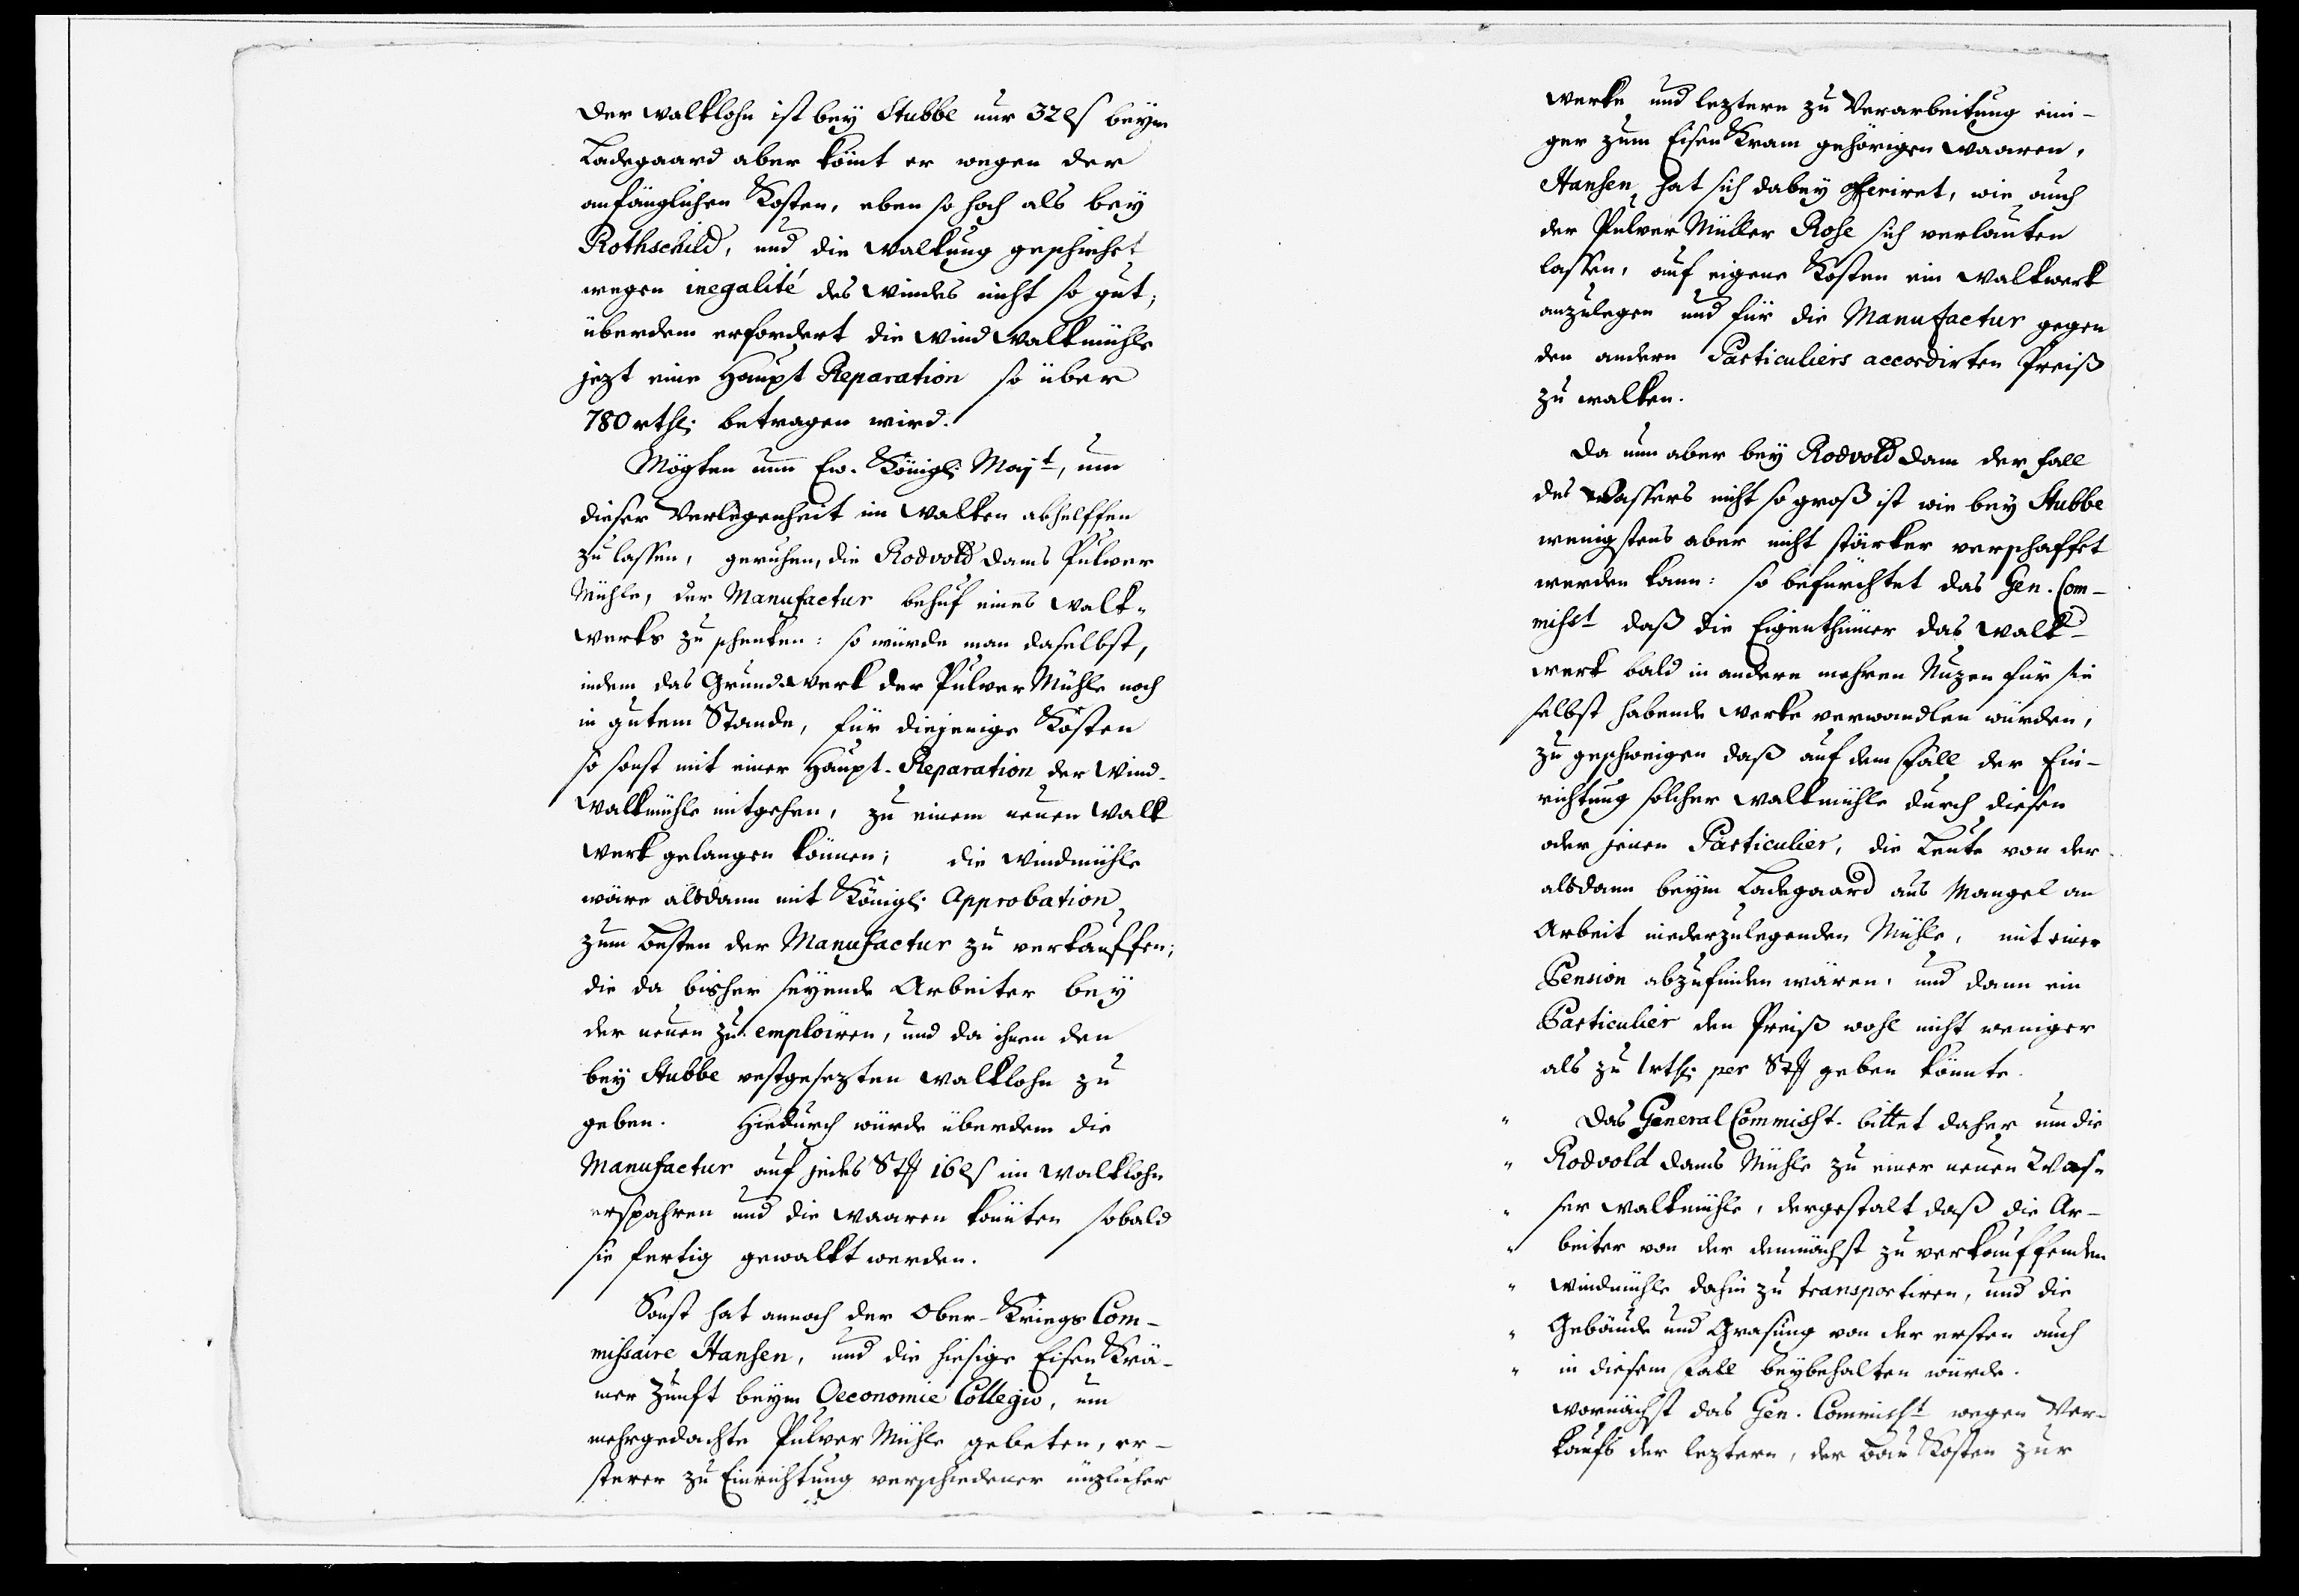 Der Walklohn ist bey Stubbe nur 32 ß beym
Ladegaard aber kömt er wegen der
anfänglichen Kosten, eben so hoch als bey
Rothschild, und die Walkung geschiehet
wegen inegalité des Windes nicht so gut;
überdem erfordert die Wind Walkmühle
jezt eine Haupt Reparation so über
780 rthl. betragen wird.
Mögten nun Ew. Königl. Majt, um
dieser Verlegenheit im Walken abhelffen
zu lassen, geruhen, die Rodvold dams Pulver
Mühle, der Manufactur behuf eines Walk-
werks zu schenken: so würde man daselbst,
indem das Grundwerk der Pulver Mühle noch
in gutem Stande, für diejenige Kosten
so sonst mit einer Haupt-Reparation der Wind-
Walkmühle mitgehen, zu einem neuen Walk
Werk gelangen können; die Windmühle
wäre alsdann mit Königl. Approbation
zum Besten der Manufactur zu verkauffen;
die da bisher seyende Arbeiter bey
der neuen zu emploiren, und da ihnen den
bey Stubbe vestgesezten Walklohn zu
geben. Hiedurch würde überdem die
Manufactur auf jedes Stk 16 ß im Walklohn
erspahren und die Waaren könten sobald
sie fertig gewalkt werden.
Sonst hat annoch der Ober-Kriegs Com-
missaire Hansen, und die hiesige Eisen Krä-
mer Zunft beym Oeconomie Collegio, um
mehrgedachte Pulver Mühle gebeten, er-
sterer zu Einrichtung verschiedener nüzlicher
Werke und leztere zu Verarbeitung eini-
ger zum Eisen Kram gehörigen Waaren,
Hansen hat sich dabey offeriret, wie auch
der Pulver Müller Rose sich verlauten
lassen, auf eigene Kosten ein Walkwerk
anzulegen und für die Manufactur gegen
den andern Particuliers accordirten Preiß
zu walken.
Da nun aber bey Rodvold dam der Fall
des Wassers nicht so groß ist wie bey Stubbe
wenigstens aber nicht stärker verschaffet
werden kann: so befürchtet das Gen. Com-
misst daß die Eigenthümer das Walk-
werk bald in andere mehren Nuzen für sie
selbst habende Werke verwandlen würden,
zu geschweigen daß auf dem Fall der Ein-
richtung solcher Walkmühle durch diesen
oder jenen Particulier, die Leute von der
alsdann beym Ladegaard aus Mangel an
Arbeit niederzulegenden Mühle, mit einer
Pension abzufinden wären, und dann ein
Particulier den Preiß wohl nicht weniger
als zu 1 rthl. per Stk geben könnte.
" Das General Commisst. bittet daher um die
" Rodvold dams Mühle zu einer neuen Was-
" ser Walkmühle, dergestalt daß die Ar-
" beiter von der demnächst zu verkauffenden
" Windmühle dahin zu transportiren, und die
" Gebäude und Grasung von der ersten auch
" in diesem Fall beybehalten würde.
wornächst das Gen. Commisst wegen Ver-
kaufs der leztern, der Bau Kosten zur